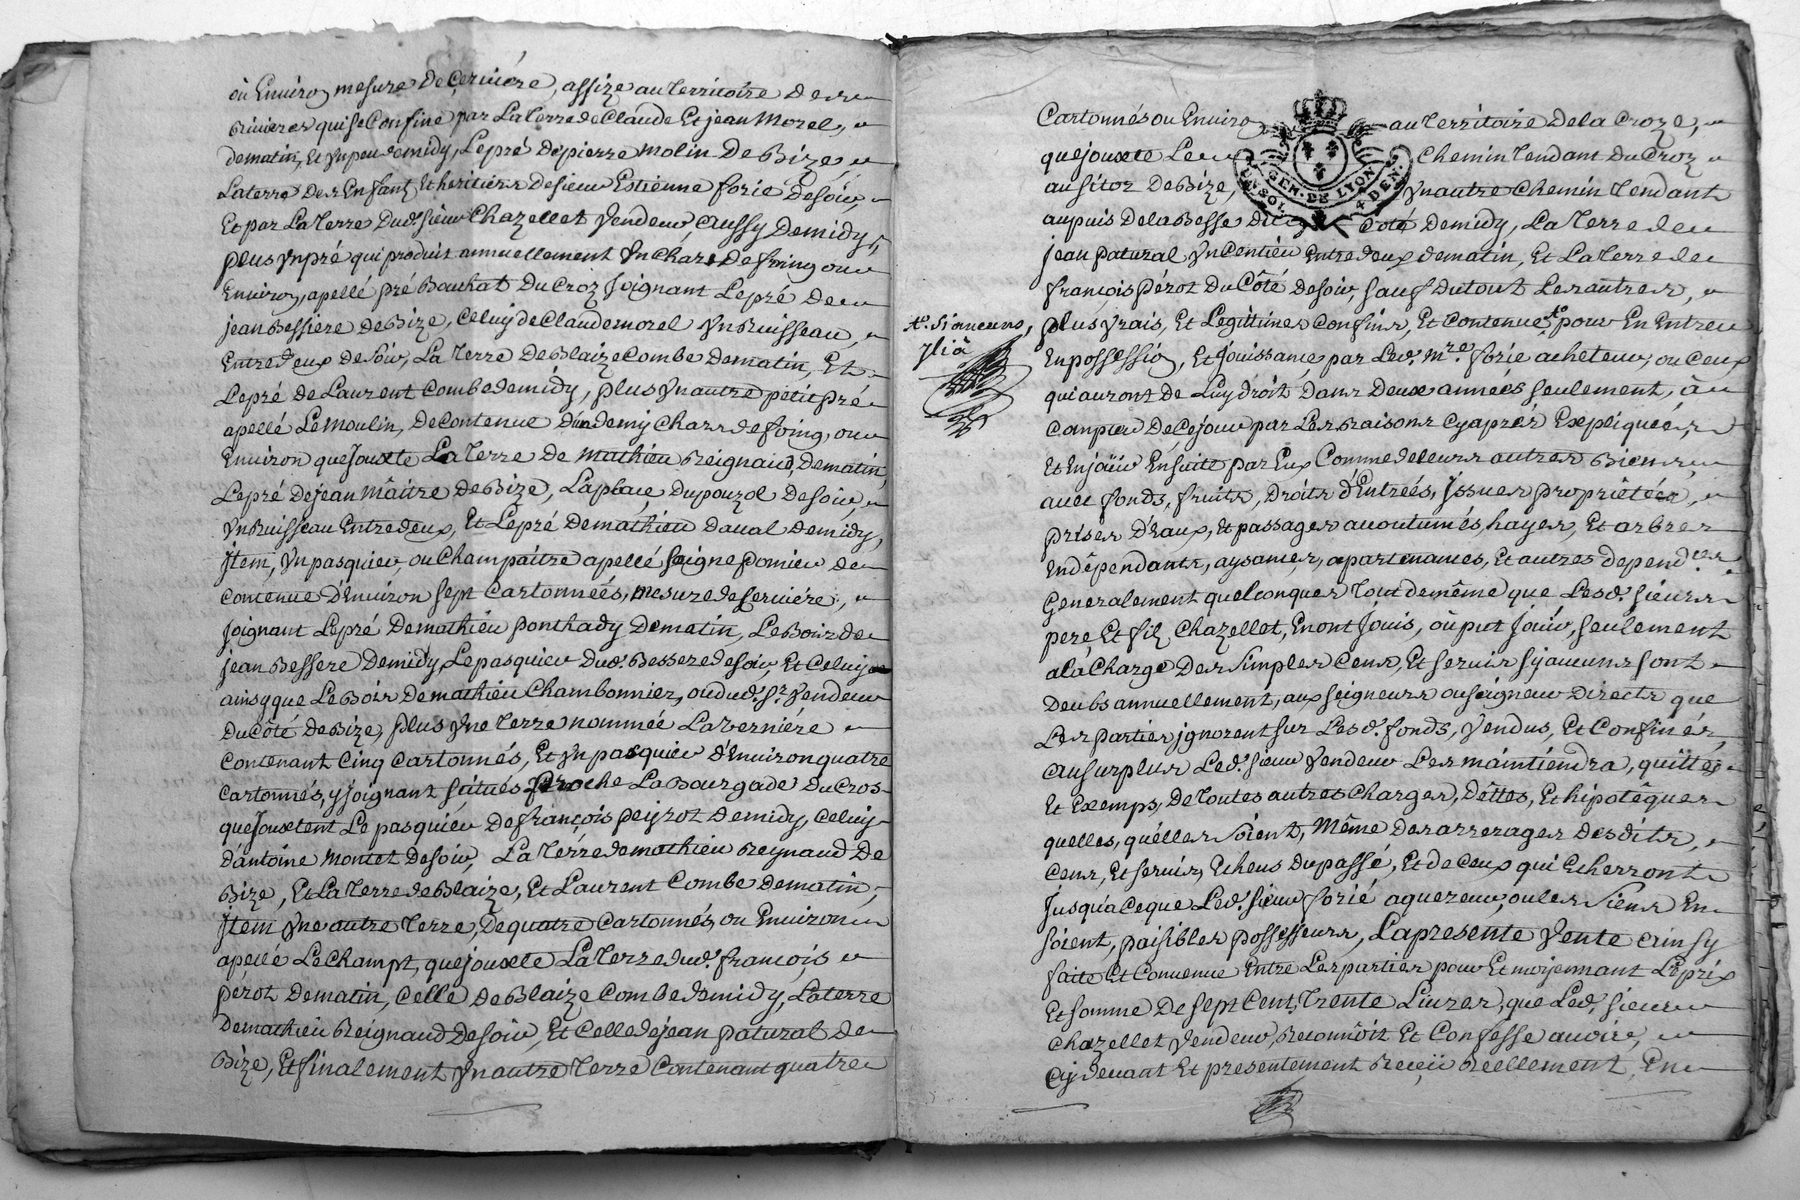 ou Environ mesure de Cerviére, assize au territoire des
Rivieres qui se Confine par La terre de Claude Et jean Morel,
de matin, Et Un peu de midy, Le pré de pierre molin De Bize,
La terre Des Enfants Et heritiers de sieur Estienne forie De soir,
Et par La terre Dud. sieur Chazellet Vendeur, aussy De midy,
plus Un pré qui produit annuellement Un Chars De foing ou
Environ, apellé pré Bouchat Du Croz Joignant Le pré De
jean Bessiere de Bize, Celuy de Claude morel Un Ruisseau,
Entre deux de Soir, La terre De Blaize Combe de matin, Et
Le pré de Laurent Combe de midy, plus Un autre petit pré
apellé Le moulin, De Contenue d'un demy Chars de foing, ou
Environ que Jouxte La terre de mathieu Reignaud, de matin,
Le pré de jean Maître de Bize, La place du pouzol de soir,
Un Ruisseau Entre deux, Et Le pré de mathieu daval de midy,
Item, Un pasquier, ou Champaitre apellé saigne pomier de
Contenue d'Environ sept Cartonnées, mesure de Cerviére,
Joignant Le pré De mathieu ponthady De matin, Le Bois de
jean Bessere De midy, Le pasquier dud. Bessere de soir, Et Celuy
ainsy que Le Bois de mathieu Chambonnier, ou dud. Sr. Vendeur
Du Côté de Bize, plus Une terre nommée La verniére
Contenant Cinq Cartonnés, Et Un pasquier d'Environ quatre
Cartonnés, y joignant situés proche La Bourgade Du Cros
que Jouxtent Le pasquier de françois peyrot De midy, Celuy
d'antoine montet De soir, La terre de mathieu Reynaud De
Bize, Et La terre de Blaize, Et Laurent Combe De matin,
Item Une autre terre, De quatre Cartonnés, ou Environ
apellé Le Champt, que jouxte La terre dud. françois
pérot De matin, Celle de Blaize Combe de midy, La terre
De mathieu Reignaud De soir, Et Celle de jean patural de
Bize, Et finalement Un autre terre Contenant quatre
Cartonnés ou Environ au territoire De la Croze,
que jouxte Le Chemin tendant Du Croz
au sitoz De Bize, Un autre Chemin tendant
au puis De la Besse du Coté De midy, La terre de
jean patural Entre deux de matin, Et La terre de
françois pérot Du Côté De soir, sauf du tout Les autres,
plus Vrais, Et Legittimes Confins, Et Contenue pour En Entrer
En possession, Et jouissance par Led. Mre. forie acheteur, ou Ceux
qui auront de Luy droit Dans Deux années seulement, â
Compter De Ce jour par Les Raisons Cy aprés Expliquées,
Et En joüir Ensuite par Eux Comme de leurs autres Biens,
avec fonds, fruits, droits d'Entrées, Issues proprietées,
prises D'eaux, Et passages accoutumés, hayes, Et arbres
En dépendants, aysances, apartenances, Et autres depend.ces
Generalement quelconques tout de même que Lesd. sieurs
pere, Et fils Chazellet, En ont Joüis, où put Joüir, seulement
a La Charge Des simples Cens, Et servis sy aucuns sont
Deubs annuellement, aux seigneurs ou seigneur Directs que
Les parties ignorent sur Lesd. fonds, Vendus, Et Confinés,
au surplus Led. sieur Vendeur Les maintiendra, quittes
Et Exemps, De toutes autres Charges, Dêttes, Et hipotêques
quelles, quélles soient, Même des arrerages desdits,
Cens, Et servis, Echeus Du passé, Et de Ceux qui Echerront
Jusqu'a Ce que Led. sieur forié aquereur, ou les siens En
soient, paisibles possesseurs, La presente Vente ainsy
faite Et Convenue Entre Les parties pour Et moyennant Le prix
Et somme De sept Cent Trente Livres, que Led. sieur
Chazellet Vendeur, Reconnoit Et Confesse avoir,
Cy devant Et presentement Reçeü Réellement, En
GEN. DE LYON
UN SOL 4 DEN.
si aucuns,
y lia